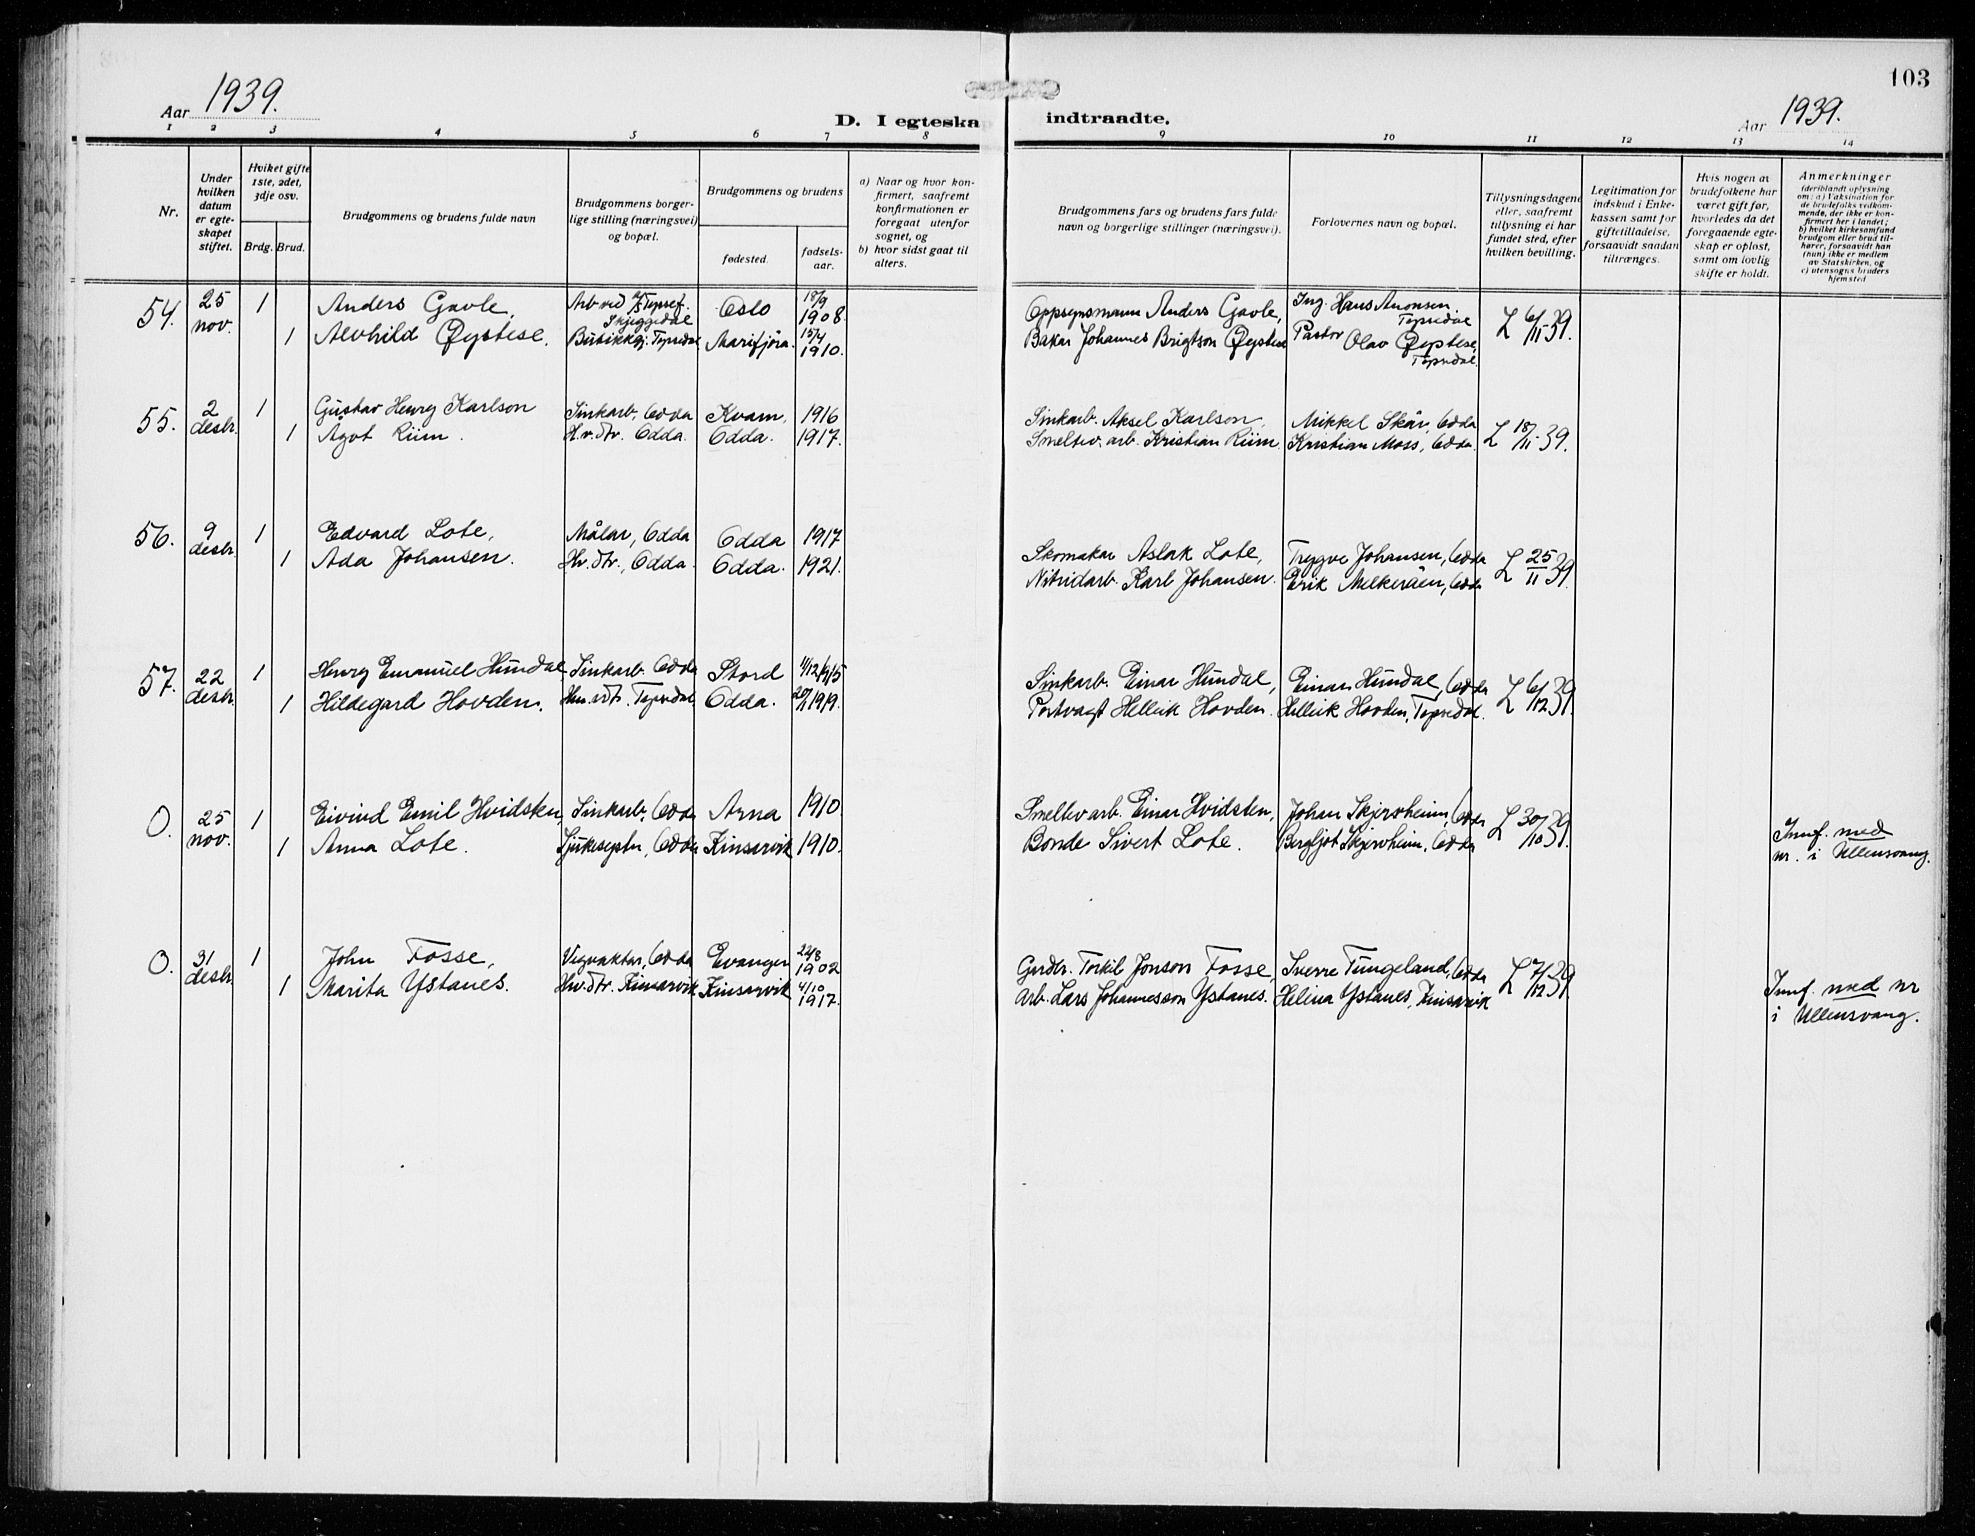 103
Aar 1939.
D. I egteska indtraadte.
Aar 1939.
1 2 3 4 5 6 7 8 9 10 11 12 13 14
Nr.
Under hvilken datum er egteskapet stiftet.
Hviket gifte 1ste, 2det, 3dje osv.
Brdg. Brud.
Brudgommens og brudens fulde navn
Brudgommens borgerlige stilling (næringsvei) og bopæl.
Brudgommens og brudens
fødested.
fødselsaar.
a) Naar og hvor konfirmert, saafremt konfirmationen er foregaat utenfor sognet, og
b) hvor sidst gaat til alters.
Brudgommens fars og brudens fars fulde navn og borgerlige stillinger (næringsvei).
Forlovernes navn og bopæl.
Tillysningsdagene eller, saafremt tillysning ei har fundet sted, efter hvilken bevilling.
Legitimation for indskud i Enkekassen samt for giftetilladelse, forsaavidt saadan tiltrænges.
Hvis nogen av brudefolkene har været gift før, hvorledes da det foregaaende egteskap er opløst, samt om lovlig skifte er holdt.
Anmerkninger
(deriblandt oplysning om: a) Vaksination for de brudefolks vedkommende, der ikke er konfirmert her i landet; b) hvilket kirkesamfund brudgom eller brud tilhører, forsaavidt han (hun) ikke er medlem av Statskirken, og c) utensogns bruders hjemsted
54. 25 nov. 1 Anders Gavle, Arb. ved Skjeggedal Oslo 18/9 1908. Oppsynsmann Anders Gavle, Ing. Hans Aronsen Tyssedal L 6/11 39.
1 Alvhild Øystese. Tyssedal Marifjøra 15/4 1910. Bakar Johannes Brigtson Øystese Pastor Olav Øystese, Tyssedal.
55. 2 desbr. 1 Gustav Henry Karlson Sinkarb., Odda Kvam, 1916 Sinkarb. Aksel Karlson, Mikkel Skår, Odda L 18/11 39.
1 Agot Riim. H.v.dtr. Odda. Odda. 1917. Smeltev. arb. Kristian Riim. Kristian Moss, Odda.
56. 9 desbr. 1 Edvard Lote, Målar, Odda Odda 1917 Skomakar Aslak Lote, Trygve Johansen, Odda L 25/11 39.
1 Ada Johansen. Hv. dtr., Odda. Odda. 1921. Nitridarb. Karl Johansen. Erik Melkeråen, Odda
57. 22 desbr. 1 Henry Emanuel Hundal Sinkarb. Odda Stord 4/12 1915 Sinkarb. Einar Hundal, Einar Hundal, Odda L 6/12 39.
1 Hildegard Hovden. Tyssedal Odda. 1919. Portvagt Helleik Hovden. Helleik Hovden, Tyssedal.
0. 25 nov. 1 Eivind Emil Hvidsten, Sinkarb., Odda Arna 1910. Smeltev arb. Einar Hvidsten, Johan Skjervheim, Odda L 30/10 39. Innf. med
1 Anna Lote. Sjukesyster, Odda Kinsarvik 1910. Bonde Sivert Lote. Bergljot Skjervheim, Odda nr. i Ullensvang.
0. 31 desbr. 1 John Fosse, Vegvaktar, Odda Evanger 22/8 1902 Gardbr. Torkil Jonson Fosse, Sverre Tungeland, Odda L 7/12 39. Innf. med nr
1 Marita Ystanes. Hv. dtr. Kinsarvik Kinsarvik 4/10 1917. Arb. Lars Johannesson Ystanes. Helina Ystanes, Kinsarvik i Ullensvang.